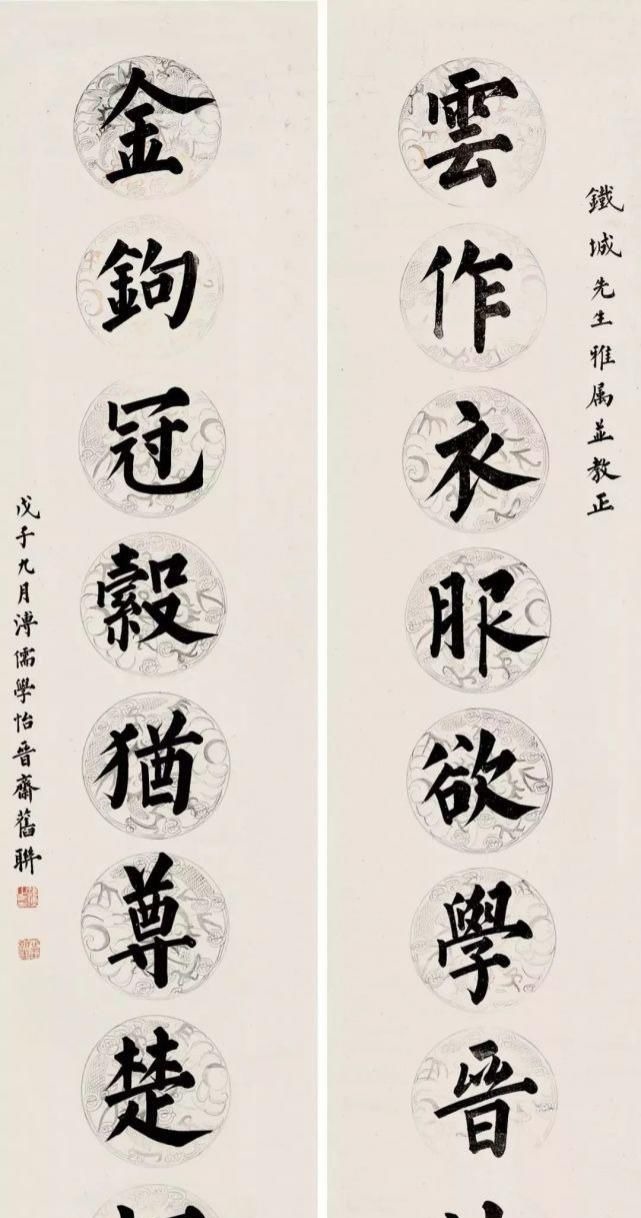 鐵城先生雅属並教正
雲作衣服欲學晉
金鉤冠縠猶尊楚
戊子九月溥儒學怡晉齋舊聯